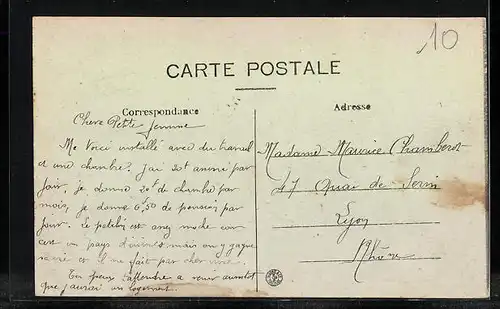 10
CARTE POSTALE
Correspondance
Chere Petite femme
Me Voici installé avec du travail
et une chambre. J'ai 20f par
jour, je donne 20f de chambre par
mois, je donne 6f,50 de pension par
jour. Le patelin est assez mode car
c'est un pays d'usines mais on y gagne
et il ne fait par cher vivre.
Tu peux t'attendre a venir aussitot
que j'aurai un logement.
Adresse
Madame Maurice Chamberot
47 Quai de Serin
Lyon
Rhône